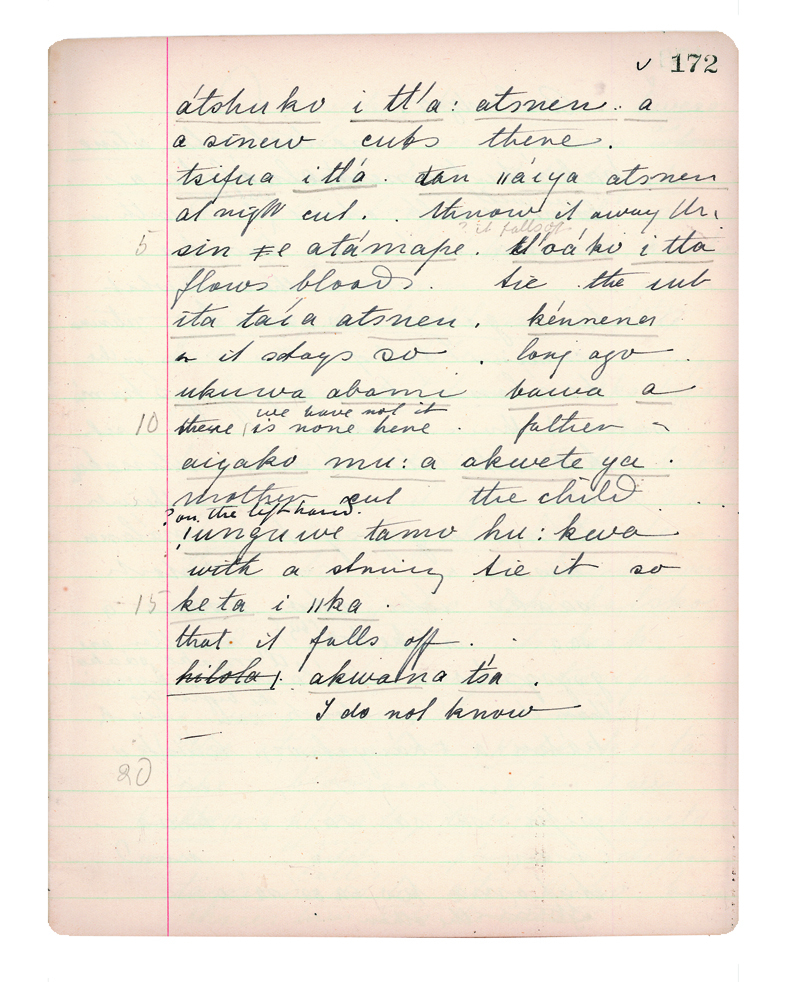 ✓ 172
átshuko i tl'a: atsnen. a
a sinew cuts there.
tsifua itlá. dan ||áiya atsnen
at night cut. throw it away
? it falls off
5 sin ǂe atámape. tl'oáko i tla
flows blood. tie the
ita taía atsnen. kénnena
it stays so. long ago.
ukuwa abami bawa a
we have not it
10 there is none here. father
aiyako mu: a akwete ya.
mother cut the child
? on the left hand.
!unguwe tamo hu: kwa
with a string tie it so
15 keta i ||ka.
that it falls off.
hilola! akwana tsa.
I do not know
20